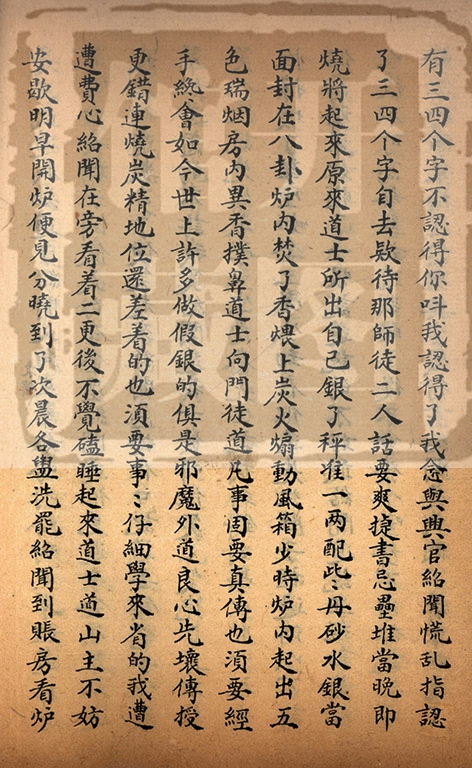 有三四个字不認得你呌我認得了我愈與興官紹聞慌乱指認
了三四个字自去欵待那師徒二人話要爽捷書忌壘堆當晩即
燒將起來原來道士所出自己銀了秤准一两配此〻丹砂水銀當
面封在八卦炉内焚了香煨上炭火煽動風箱少時炉内起出五
色瑞烟房内異香撲鼻道士向門徒道凡事固要真傳也湏要經
手纔會如今世上許多做假銀的俱是邪魔外道良心先壞傳授
更錯連燒炭精地位還差着的也湏要事〻仔細學來省的我遭
遭費心紹聞在旁看着二更後不覺磕睡起來道士道山主不妨
安歇明早開炉便見分曉到了次晨各盥洗罷紹聞到賬房看炉